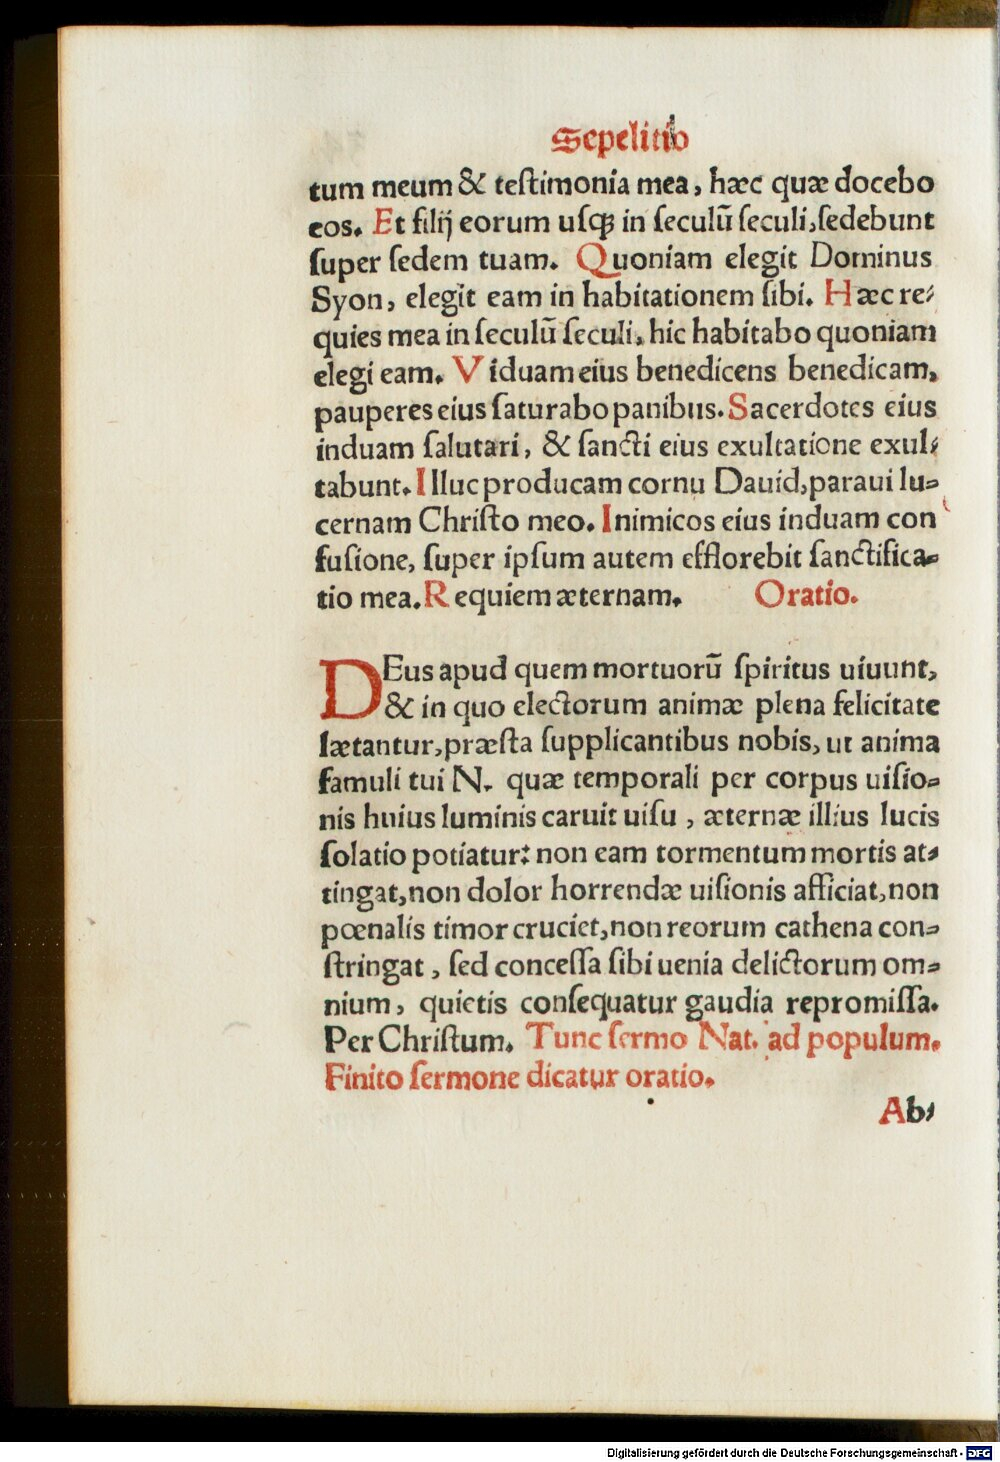 Sepelitio
tum meum & teſtimonia mea, hæc quæ docebo
eos. Et filij eorum uſqꝫ in ſeculū ſeculi, ſedebunt
ſuper ſedem tuam. Quoniam elegit Dominus
Syon, elegit eam in habitationem ſibi. Hæc re⸗
quies mea in ſeculū ſeculi, hic habitabo quoniam
elegi eam. Viduam eius benedicens benedicam,
pauperes eius ſaturabo panibus. Sacerdotes eius
induam ſalutari, & ſancti eius exultatione exul⸗
tabunt. Illuc producam cornu Dauid, paraui lu⸗
cernam Chriſto meo. Inimicos eius induam con
fuſione, ſuper ipſum autem efflorebit ſanctifica⸗
tio mea. Requiem æternam. Oratio.
DEus apud quem mortuorū ſpiritus uiuunt,
& in quo electorum animæ plena felicitate
lætantur, præſta ſupplicantibus nobis, ut anima
famuli tui N. quæ temporali per corpus uiſio⸗
nis huius luminis caruit uiſu, æternæ illius lucis
ſolatio potiatur: non eam tormentum mortis at⸗
tingat, non dolor horrendæ uiſionis afficiat, non
pœnalis timor cruciet, non reorum cathena con⸗
ſtringat, ſed conceſſa ſibi uenia delictorum om⸗
nium, quietis conſequatur gaudia repromiſſa.
Per Chriſtum. Tunc ſermo Nat. ad populum.
Finito ſermone dicatur oratio.
Ab⸗
Digitalisierung gefördert durch die Deutsche Forschungsgemeinschaft - DFG